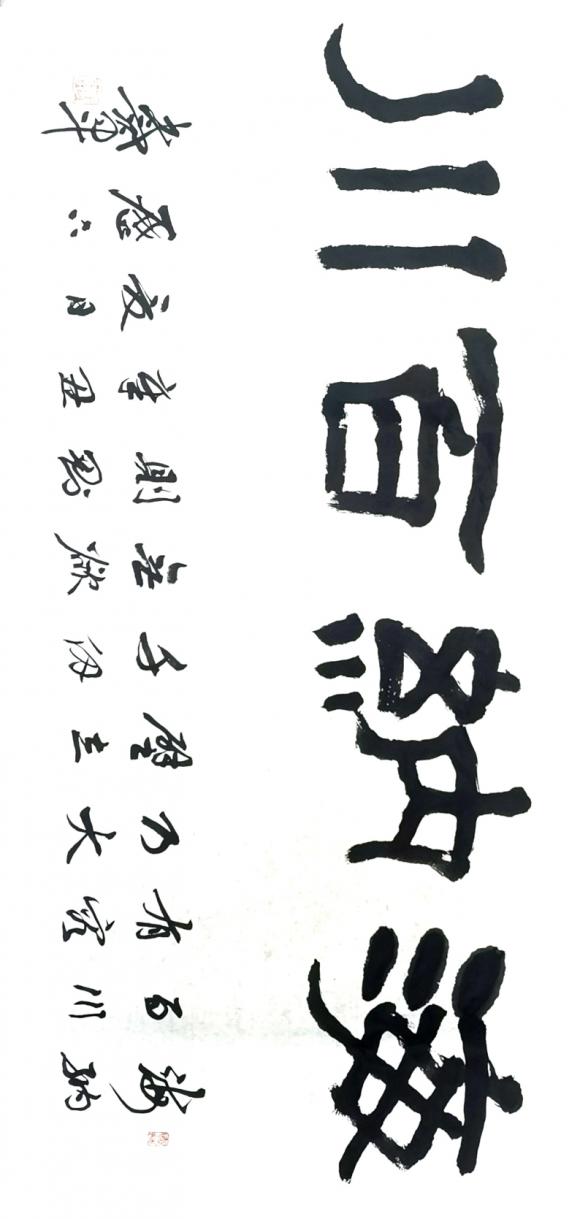 海納百川
海納
百川
有容
乃大
壁立
千仞
無欲
則剛
辛丑
夏月